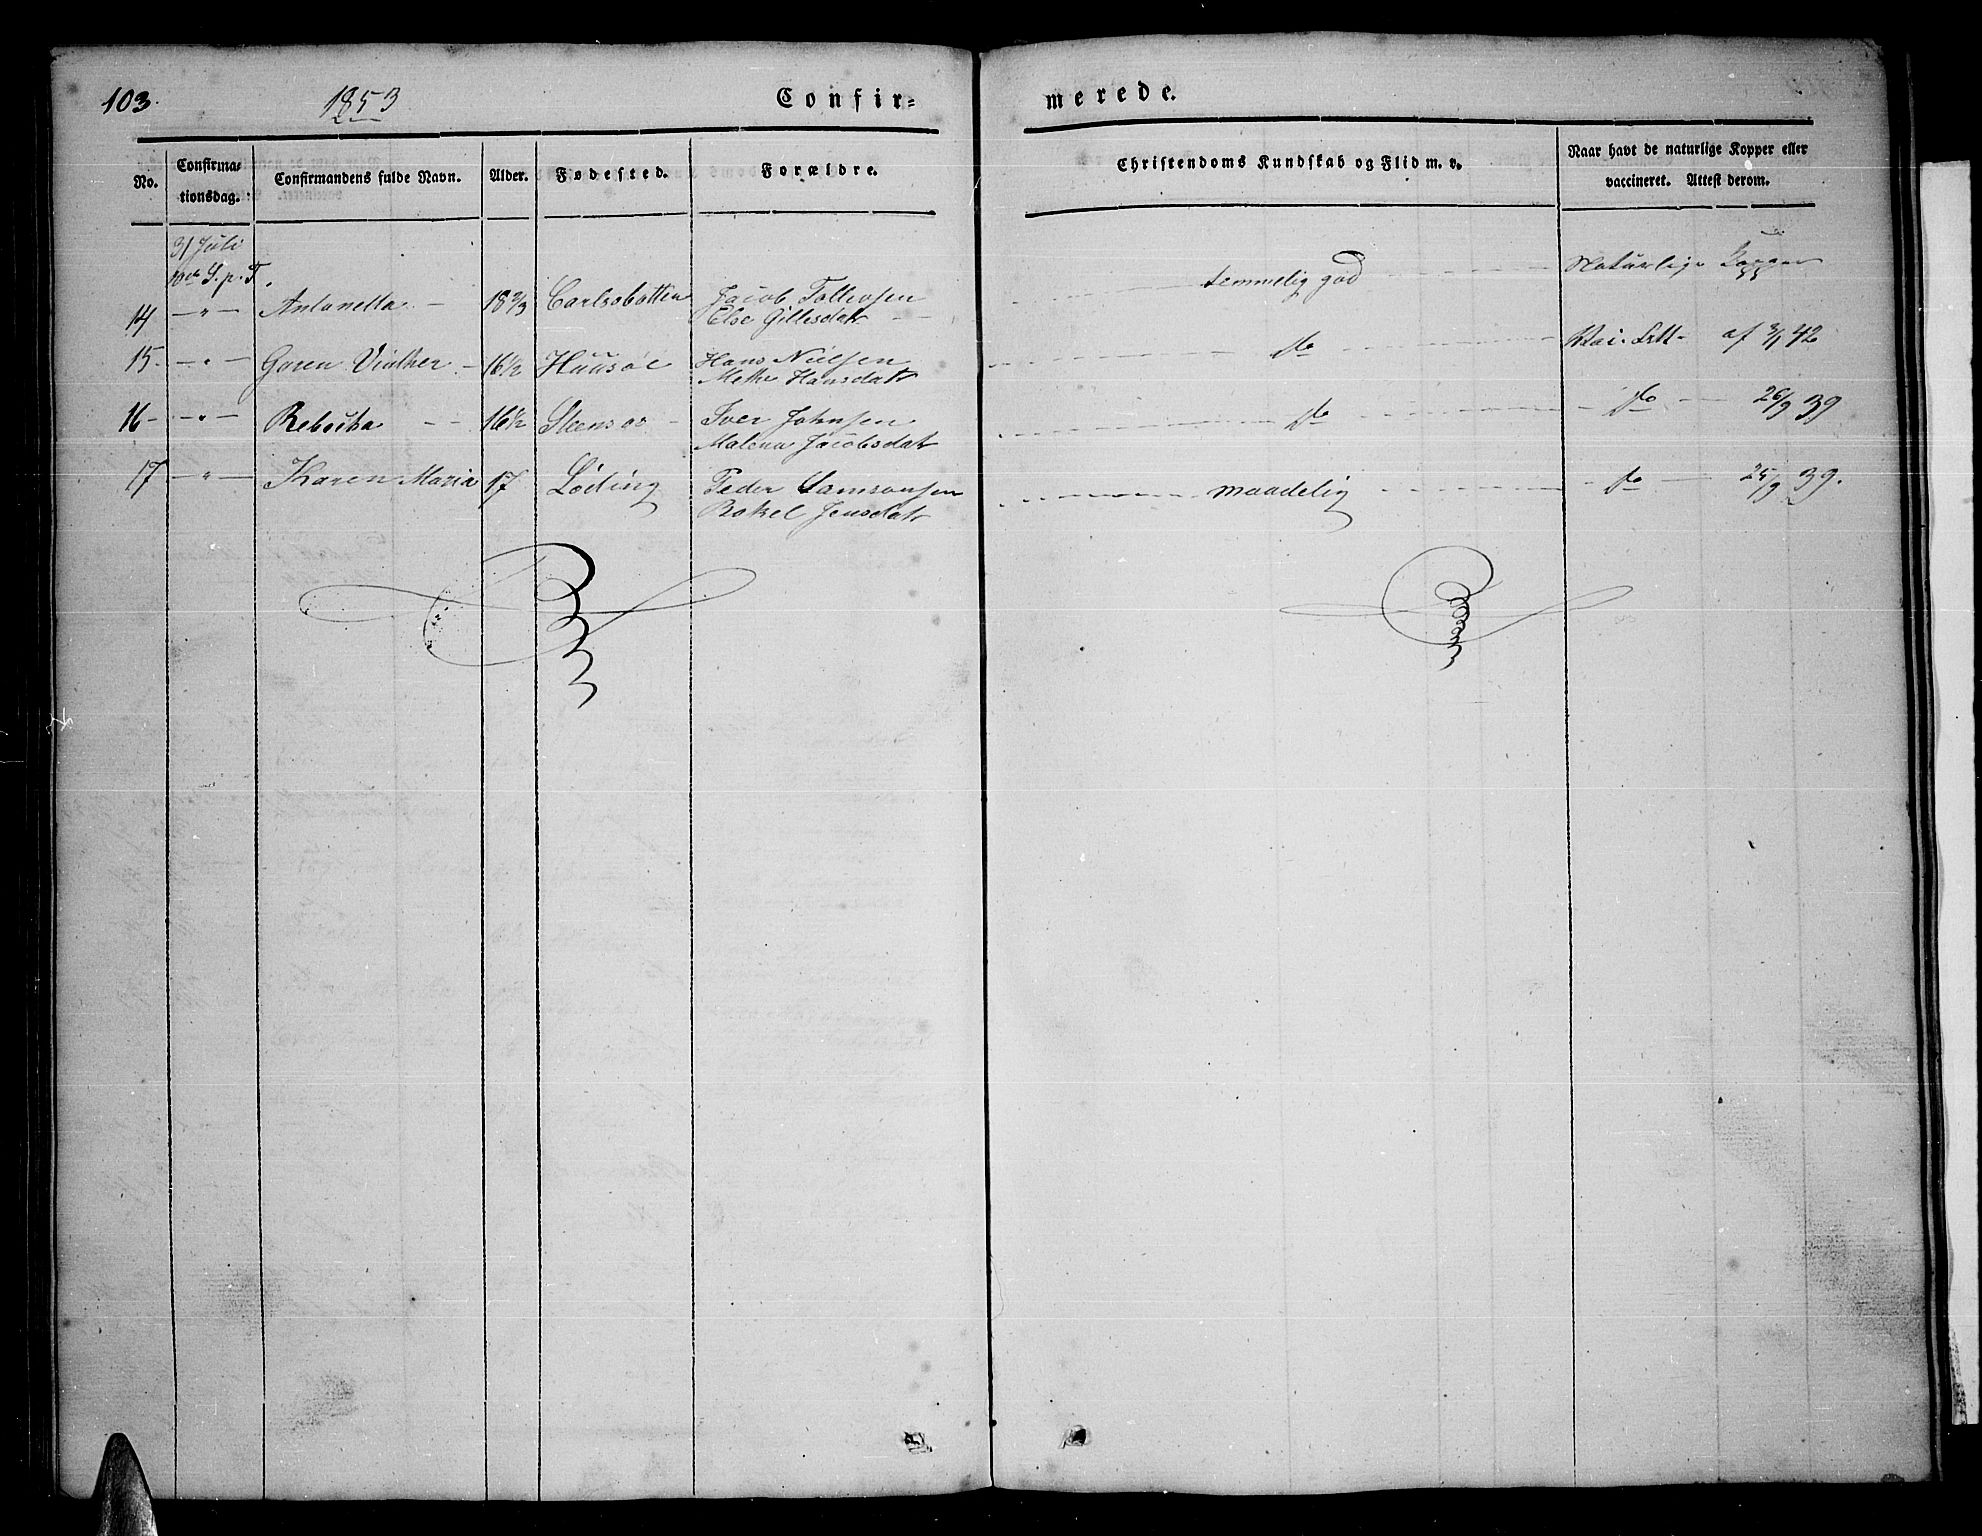 103.
1853
Confir=
merede.
No.
Confirma-
tionsdag.
Confirmandens fulde Navn.
Alder.
Fødested.
Forældre.
Christendoms Kundskab og Flid m. v.
Naar havt de naturlige Kopper eller
vaccineret. Attest derom.
31 Juli
10de S. p. T.
14 — " — Antonetta — 18 2/3 Carlsbotten Jacob Tollevsen temmelig god Naturlige Kopper
Else Gillesdatr
15 — " — Goren 16 1/2 Hans Nielsen do af 3/1 42
Mette Hansdatr
16 — " — Rebecka 16 1/2 Steensos Iver Johnsen do do 26/9 39
Malena Jacobsdatr
17 — " — Karen Maria 17 Löding Peder Samsonsen maadelig do 25/9 39.
Rakel Jensdatr